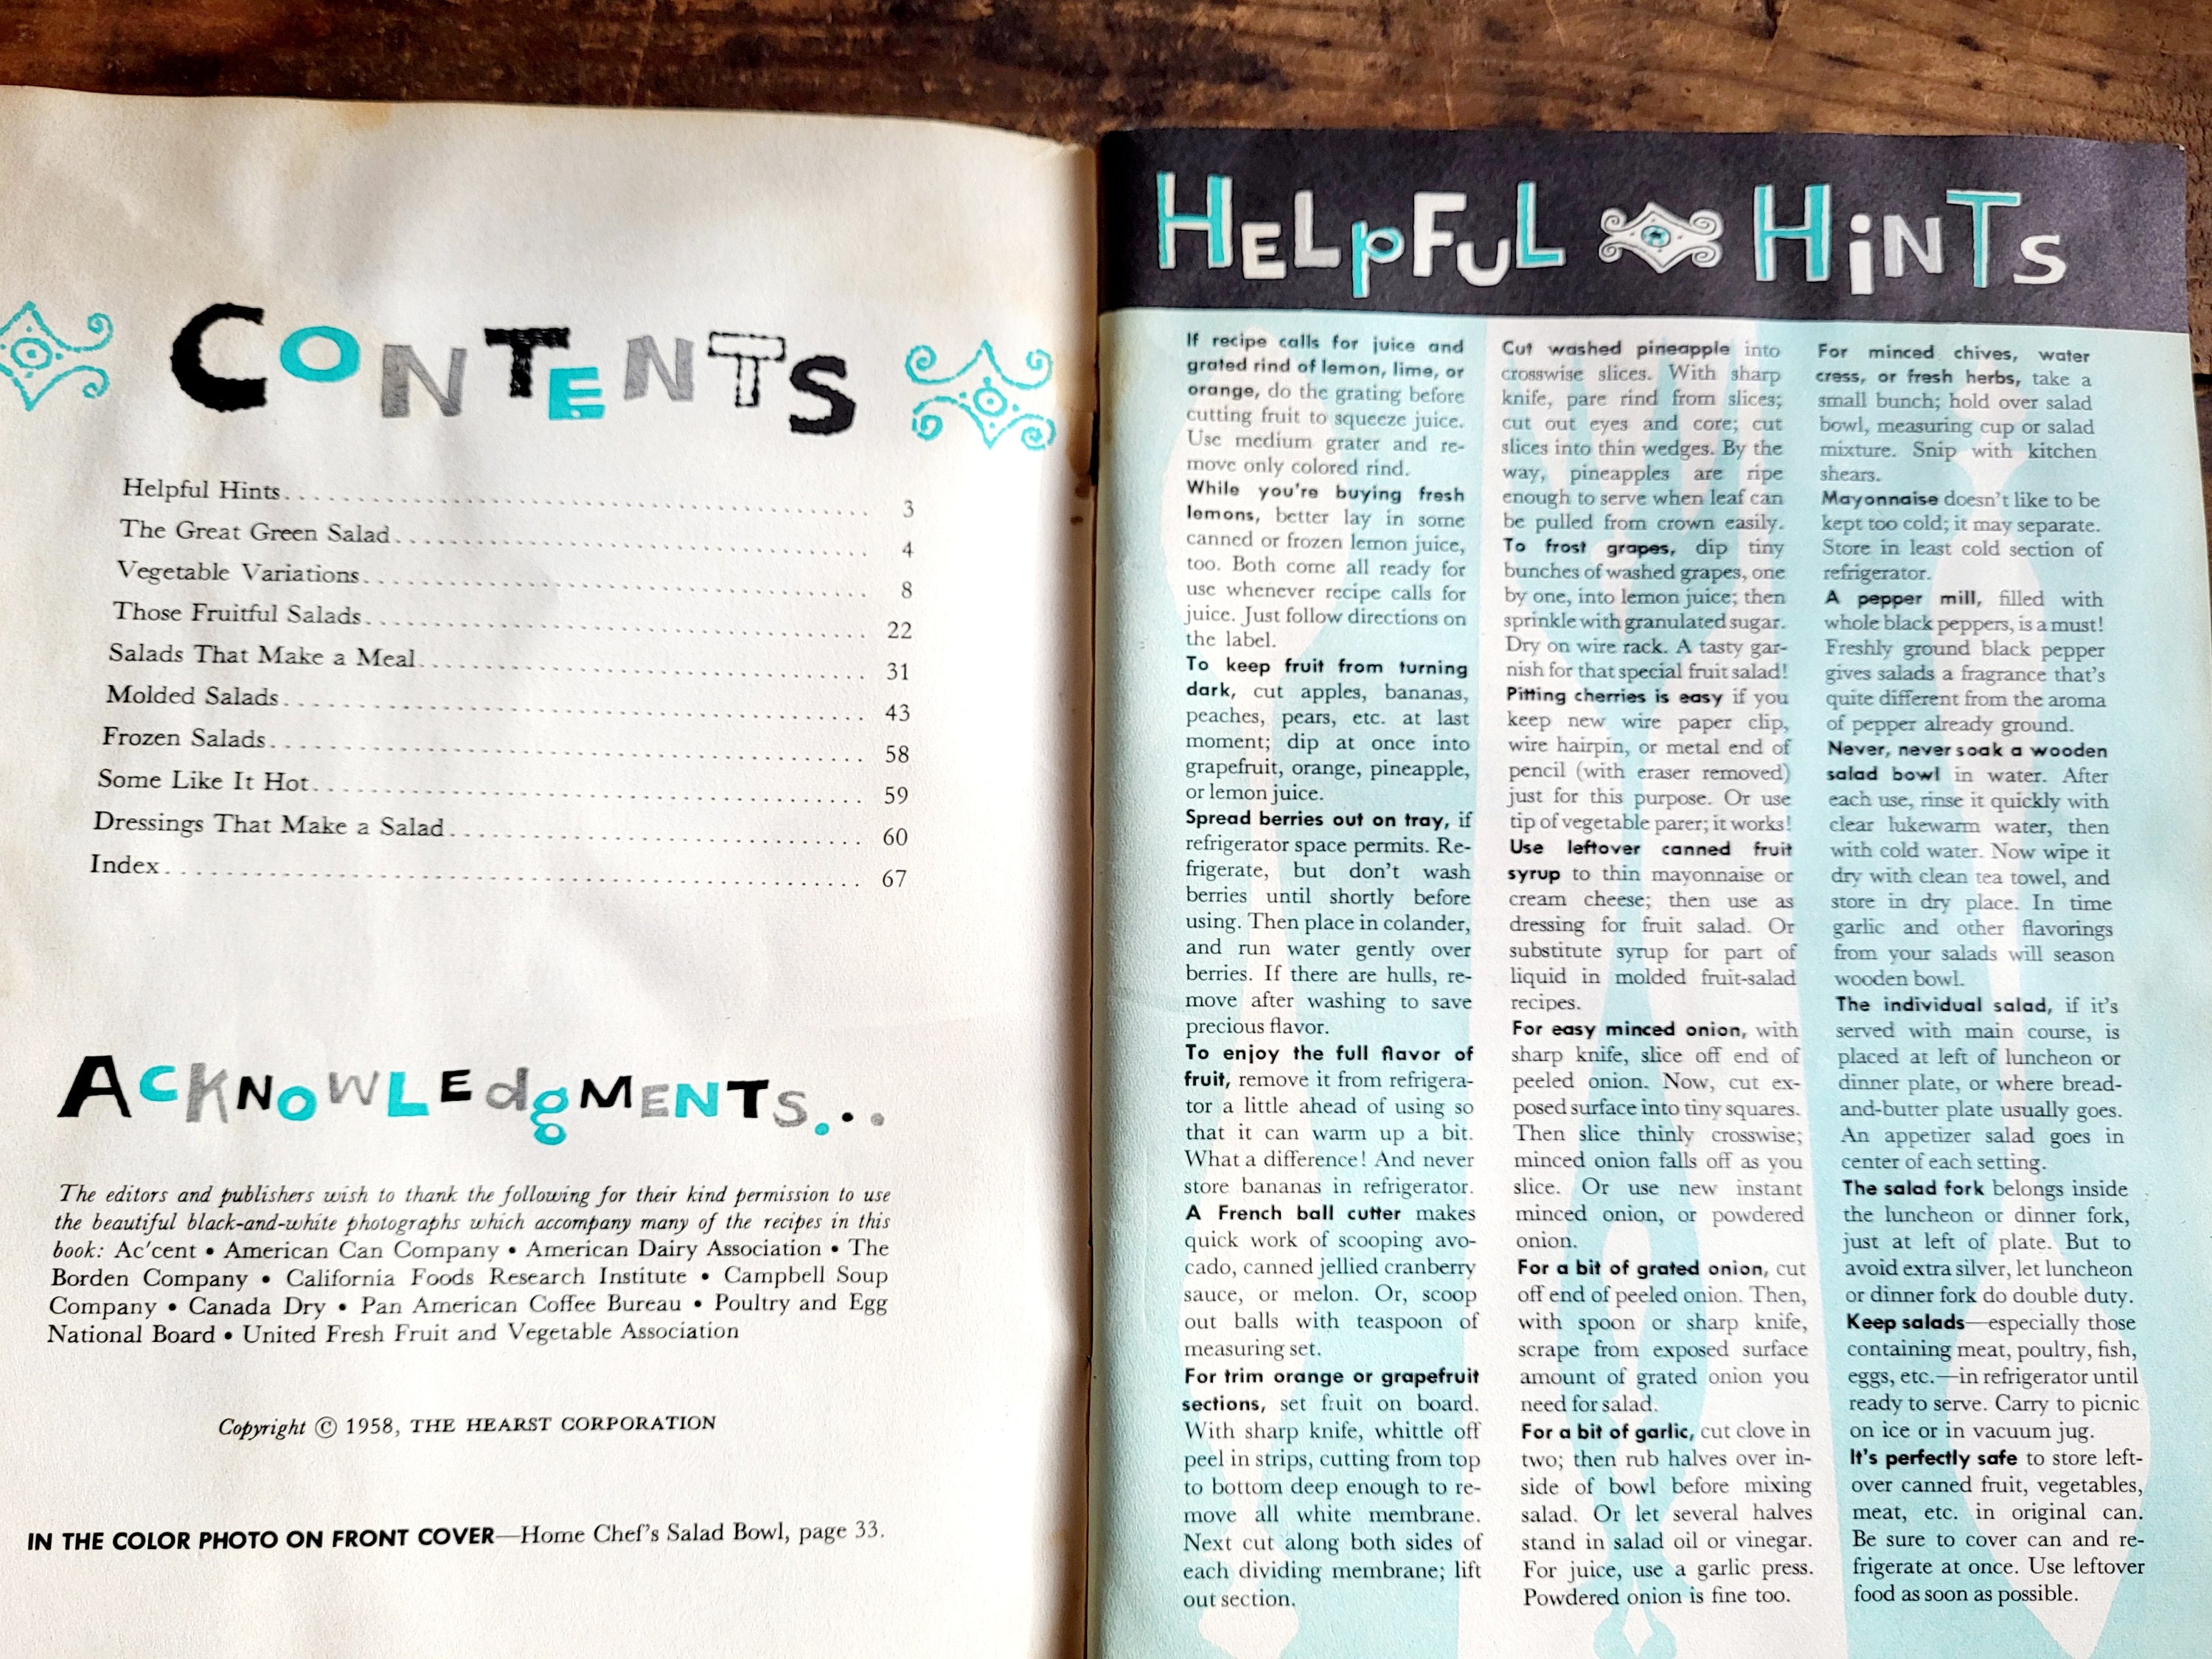 CONTENTS
Helpful Hints 3
The Great Green Salad 4
Vegetable Variations 8
Those Fruitful Salads 22
Salads That Make a Meal 31
Molded Salads 43
Frozen Salads 58
Some Like It Hot 59
Dressings That Make a Salad 60
Index 67
ACKNOWLEdgMENTS...
The editors and publishers wish to thank the following for their kind permission to use
the beautiful black-and-white photographs which accompany many of the recipes in this
book: Ac'cent • American Can Company • American Dairy Association • The
Borden Company • California Foods Research Institute • Campbell Soup
Company • Canada Dry • Pan American Coffee Bureau • Poultry and Egg
National Board • United Fresh Fruit and Vegetable Association
Copyright © 1958, THE HEARST CORPORATION
IN THE COLOR PHOTO ON FRONT COVER—Home Chef's Salad Bowl, page 33.
HELpFUL HiNTS
If recipe calls for juice and
grated rind of lemon, lime, or
orange, do the grating before
cutting fruit to squeeze juice.
Use medium grater and re-
move only colored rind.
While you're buying fresh
lemons, better lay in some
canned or frozen lemon juice,
too. Both come all ready for
use whenever recipe calls for
juice. Just follow directions on
the label.
To keep fruit from turning
dark, cut apples, bananas,
peaches, pears, etc. at last
moment; dip at once into
grapefruit, orange, pineapple,
or lemon juice.
Spread berries out on tray, if
refrigerator space permits. Re-
frigerate, but don't wash
berries until shortly before
using. Then place in colander,
and run water gently over
berries. If there are hulls, re-
move after washing to save
precious flavor.
To enjoy the full flavor of
fruit, remove it from refrigera-
tor a little ahead of using so
that it can warm up a bit.
What a difference! And never
store bananas in refrigerator.
A French ball cutter makes
quick work of scooping avo-
cado, canned jellied cranberry
sauce, or melon. Or, scoop
out balls with teaspoon of
measuring set.
For trim orange or grapefruit
sections, set fruit on board.
With sharp knife, whittle off
peel in strips, cutting from top
to bottom deep enough to re-
move all white membrane.
Next cut along both sides of
each dividing membrane; lift
out section.
Cut washed pineapple into
crosswise slices. With sharp
knife, pare rind from slices;
cut out eyes and core; cut
slices into thin wedges. By the
way, pineapples are ripe
enough to serve when leaf can
be pulled from crown easily.
To frost grapes, dip tiny
bunches of washed grapes, one
by one, into lemon juice; then
sprinkle with granulated sugar.
Dry on wire rack. A tasty gar-
nish for that special fruit salad!
Pitting cherries is easy if you
keep new wire paper clip,
wire hairpin, or metal end of
pencil (with eraser removed)
just for this purpose. Or use
tip of vegetable parer; it works!
Use leftover canned fruit
syrup to thin mayonnaise or
cream cheese; then use as
dressing for fruit salad. Or
substitute syrup for part of
liquid in molded fruit-salad
recipes.
For easy minced onion, with
sharp knife, slice off end of
peeled onion. Now, cut ex-
posed surface into tiny squares.
Then slice thinly crosswise;
minced onion falls off as you
slice. Or use new instant
minced onion, or powdered
onion.
For a bit of grated onion, cut
off end of peeled onion. Then,
with spoon or sharp knife,
scrape from exposed surface
amount of grated onion you
need for salad.
For a bit of garlic, cut clove in
two; then rub halves over in-
side of bowl before mixing
salad. Or let several halves
stand in salad oil or vinegar.
For juice, use a garlic press.
Powdered onion is fine too.
For minced chives, water
cress, or fresh herbs, take a
small bunch; hold over salad
bowl, measuring cup or salad
mixture. Snip with kitchen
shears.
Mayonnaise doesn't like to be
kept too cold; it may separate.
Store in least cold section of
refrigerator.
A pepper mill, filled with
whole black peppers, is a must!
Freshly ground black pepper
gives salads a fragrance that's
quite different from the aroma
of pepper already ground.
Never, never soak a wooden
salad bowl in water. After
each use, rinse it quickly with
clear lukewarm water, then
with cold water. Now wipe it
dry with clean tea towel, and
store in dry place. In time
garlic and other flavorings
from your salads will season
wooden bowl.
The individual salad, if it's
served with main course, is
placed at left of luncheon or
dinner plate, or where bread-
and-butter plate usually goes.
An appetizer salad goes in
center of each setting.
The salad fork belongs inside
the luncheon or dinner fork,
just at left of plate. But to
avoid extra silver, let luncheon
or dinner fork do double duty.
Keep salads—especially those
containing meat, poultry, fish,
eggs, etc.—in refrigerator until
ready to serve. Carry to picnic
on ice or in vacuum jug.
It's perfectly safe to store left-
over canned fruit, vegetables,
meat, etc. in original can.
Be sure to cover can and re-
frigerate at once. Use leftover
food as soon as possible.